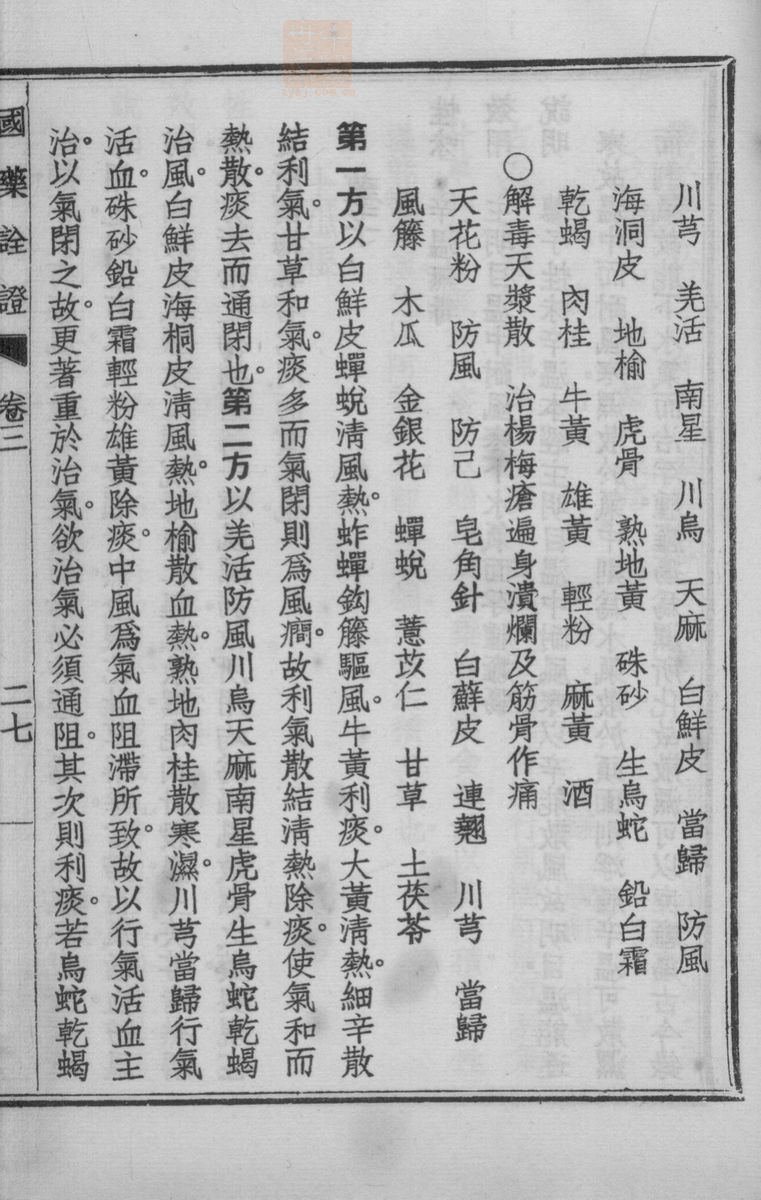 川芎　羌活　南星　川烏　天麻　白鮮皮　當歸　防風
海洞皮　地榆　虎骨　熟地黃　硃砂　生烏蛇　鉛白霜
乾蝎　肉桂　牛黃　雄黃　輕粉　麻黃　酒
〇解毒天漿散　治楊梅瘡遍身潰爛及筋骨作痛
天花粉　防風　防己　皂角針　白蘚皮　連翹　川芎　當歸
風籐　木瓜　金銀花　蟬蛻　薏苡仁　甘草　土茯苓
第一方以白鮮皮蟬蛻淸風熱。蚱蟬鈎籐驅風。牛黃利痰。大黃淸熱。細辛散
結利氣。甘草和氣。痰多而氣閉則爲風癎。故利氣散結淸熱除痰。使氣和而
熱散。痰去而通閉也。第二方以羌活防風川烏天麻南星虎骨生烏蛇乾蝎
治風。白鮮皮海桐皮淸風熱。地榆散血熱。熟地肉桂散寒濕。川芎當歸行氣
活血。硃砂鉛白霜輕粉雄黃除痰。中風爲氣血阻滯所致。故以行氣活血主
治。以氣閉之故。更著重於治氣。欲治氣必須通阻。其次則利痰。若烏蛇乾蝎
國藥詮證　卷三　二七